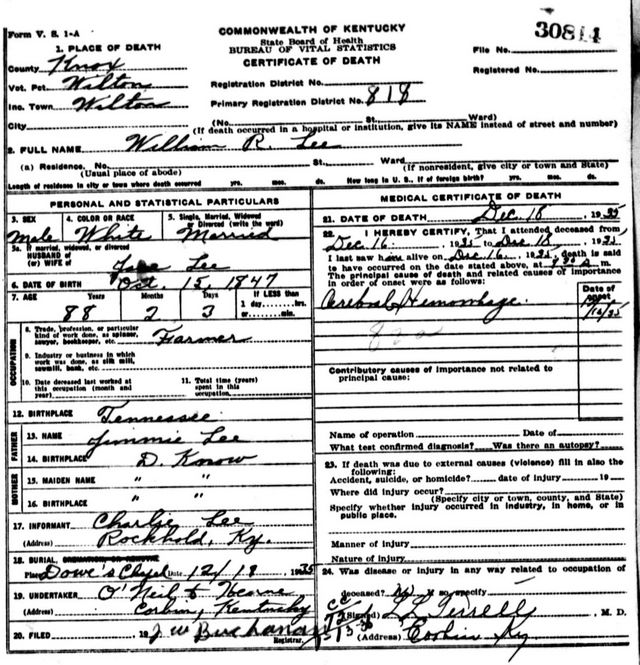 Form V. S. 1-A
COMMONWEALTH OF KENTUCKY
State Board of Health
BUREAU OF VITAL STATISTICS
CERTIFICATE OF DEATH
30814
File No.
Registered No.
1. PLACE OF DEATH
County Knox
Vot. Pct. Wilton
Inc. Town Wilton
Registration District No.
Primary Registration District No. 818
City (No. St. Ward)
(If death occurred in a hospital or institution, give its NAME instead of street and number)
2. FULL NAME William R. Lee
(a) Residence. No. St. Ward
(Usual place of abode) (If nonresident, give city or town and State)
Length of residence in city or town where death occurred yrs. mos. ds. How long in U. S., if of foreign birth? yrs. mos. ds.
PERSONAL AND STATISTICAL PARTICULARS
3. SEX 4. COLOR OR RACE 5. Single, Married, Widowed or Divorced (write the word)
Male White Married
5a. If married, widowed, or divorced
HUSBAND of
(or) WIFE of Lee
6. DATE OF BIRTH Oct. 15, 1847
7. AGE Years Months Days If LESS than
1 day, hrs.
or min.
88 2 3
OCCUPATION
8. Trade, profession, or particular kind of work done, as spinner, sawyer, bookkeeper, etc. Farmer
9. Industry or business in which work was done, as silk mill, sawmill, bank, etc.
10. Date deceased last worked at this occupation (month and year)
11. Total time (years) spent in this occupation
12. BIRTHPLACE Tennessee
FATHER
13. NAME Jimmie Lee
14. BIRTHPLACE D. Know
MOTHER
15. MAIDEN NAME " "
16. BIRTHPLACE " "
17. INFORMANT Charlie Lee
(Address) Rockhold, Ky.
18. BURIAL, CREMATION OR REMOVAL
Place Dowe's Chapel Date 12/18 1935
19. UNDERTAKER O'Neil & Hearne
(Address) Corbin, Kentucky
20. FILED 19 J W Buchanan
Registrar.
MEDICAL CERTIFICATE OF DEATH
21. DATE OF DEATH Dec. 18, 1935
22. I HEREBY CERTIFY, That I attended deceased from
Dec. 16, 1935 to Dec 18, 1935
I last saw him alive on Dec. 16, 1935, death is said
to have occurred on the date stated above, at m.
The principal cause of death and related causes of importance
in order of onset were as follows:
Date of onset
Cerebral Hemorrhage.
Contributory causes of importance not related to
principal cause:
Name of operation Date of
What test confirmed diagnosis? Was there an autopsy?
23. If death was due to external causes (violence) fill in also the
following:
Accident, suicide, or homicide? date of injury 19
Where did injury occur?
(Specify city or town, county, and State)
Specify whether injury occurred in industry, in home, or in
public place.
Manner of injury
Nature of injury
24. Was disease or injury in any way related to occupation of
deceased? No If so specify
(Signed) Terrell M. D.
(Address) Ky